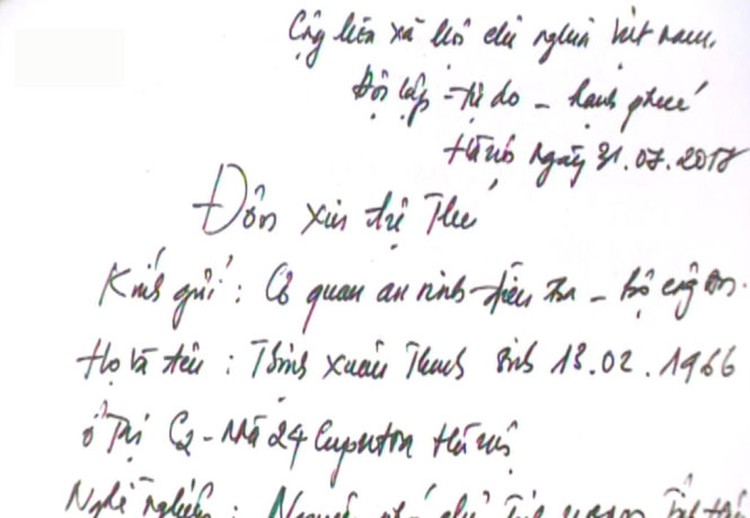 Cộng hòa xã hội chủ nghĩa Việt Nam.
Độc lập - tự do - hạnh phúc
Hà nội ngày 31.07.2017
Đơn xin tự Thú
Kính gửi: Cơ quan an ninh điều tra - Bộ công an.
Họ và tên: Trịnh Xuân Thanh sinh 13.02.1966
ở tại C2 - Nhà 24 Hà nội
Nghề nghiệp: Nguyên phó chủ tịch